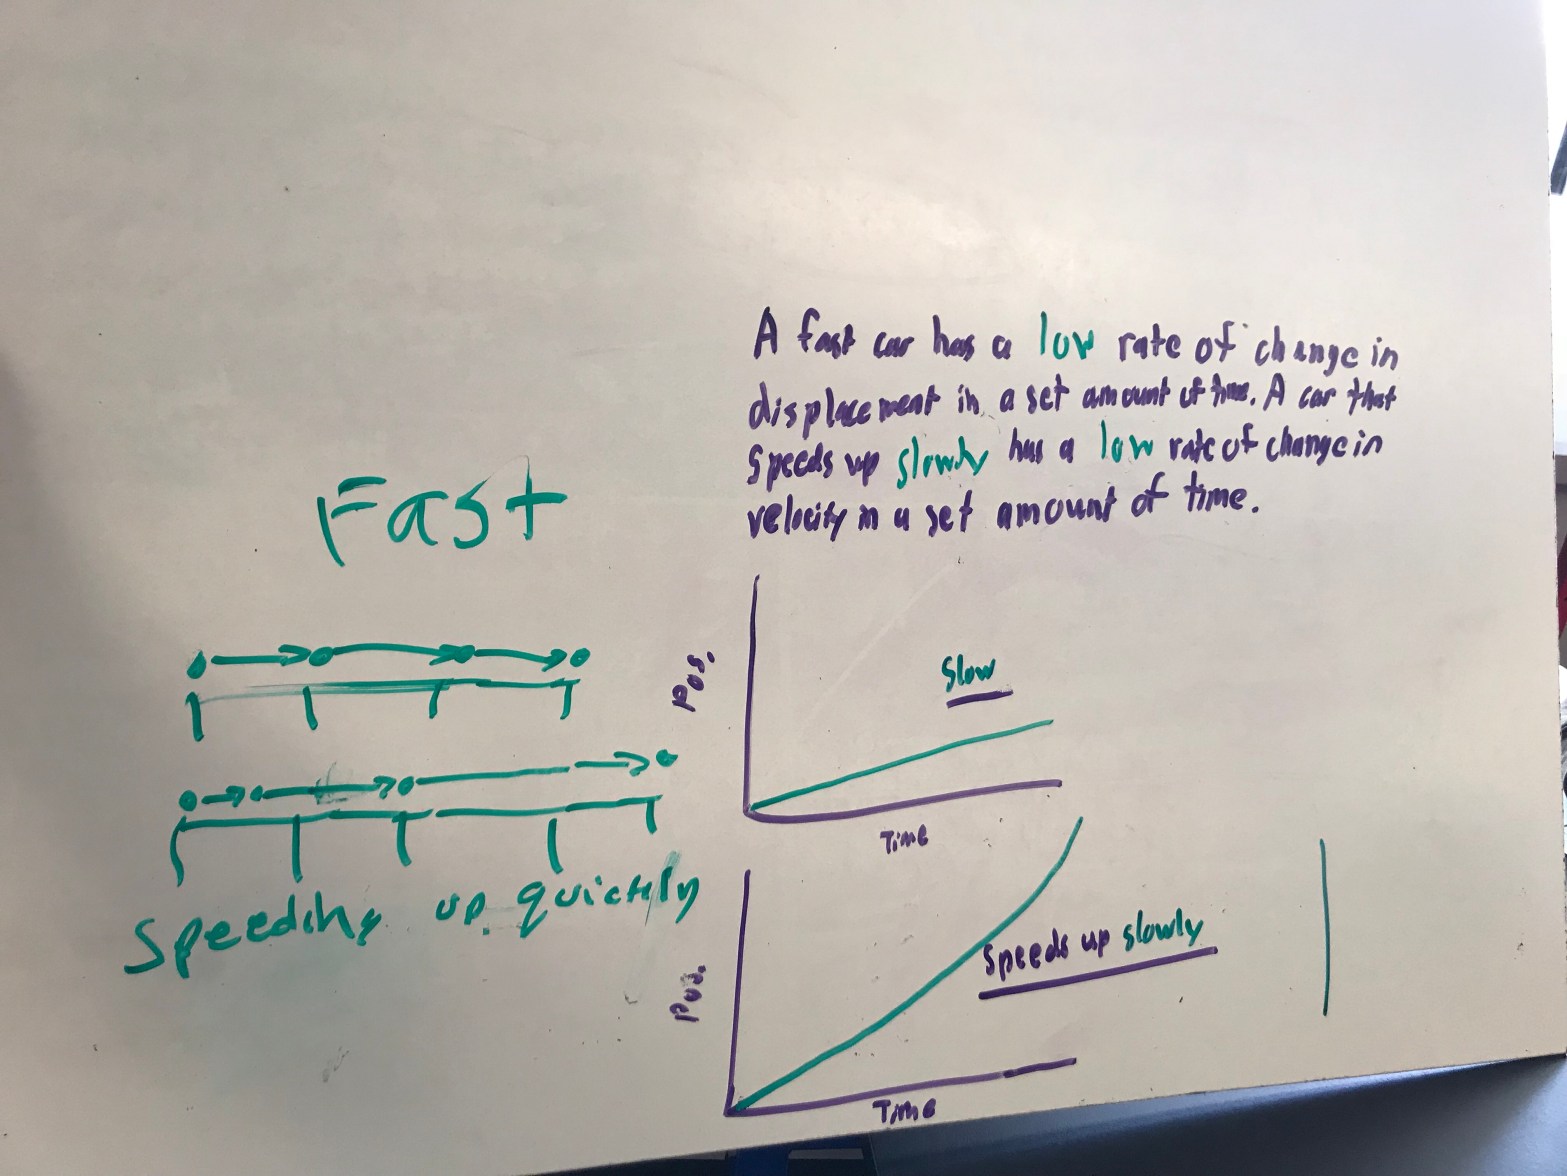 A fast car has a low rate of change in
displacement in a set amount of time. A car that
speeds up slowly has a low rate of change in
velocity in a set amount of time.
Fast
Speeding up quickly
Pos.
Slow
Time
Pos.
Speeds up slowly
Time